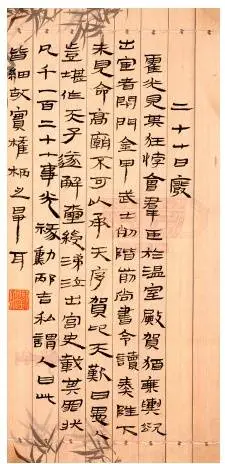 二十七日廢
霍光見其狂悖會羣臣於温室殿賀猶乘輿翫
出宦者閉門金甲武士列階前尚書令讀奏陛下
未見命高廟不可以承天序賀仰天歎曰愚人
豈堪作天子遂解璽綬涕泣出宫史載其罪狀
凡千一百二十七事光禄勳邴吉私謂人曰此
皆細故實權柄之爭耳